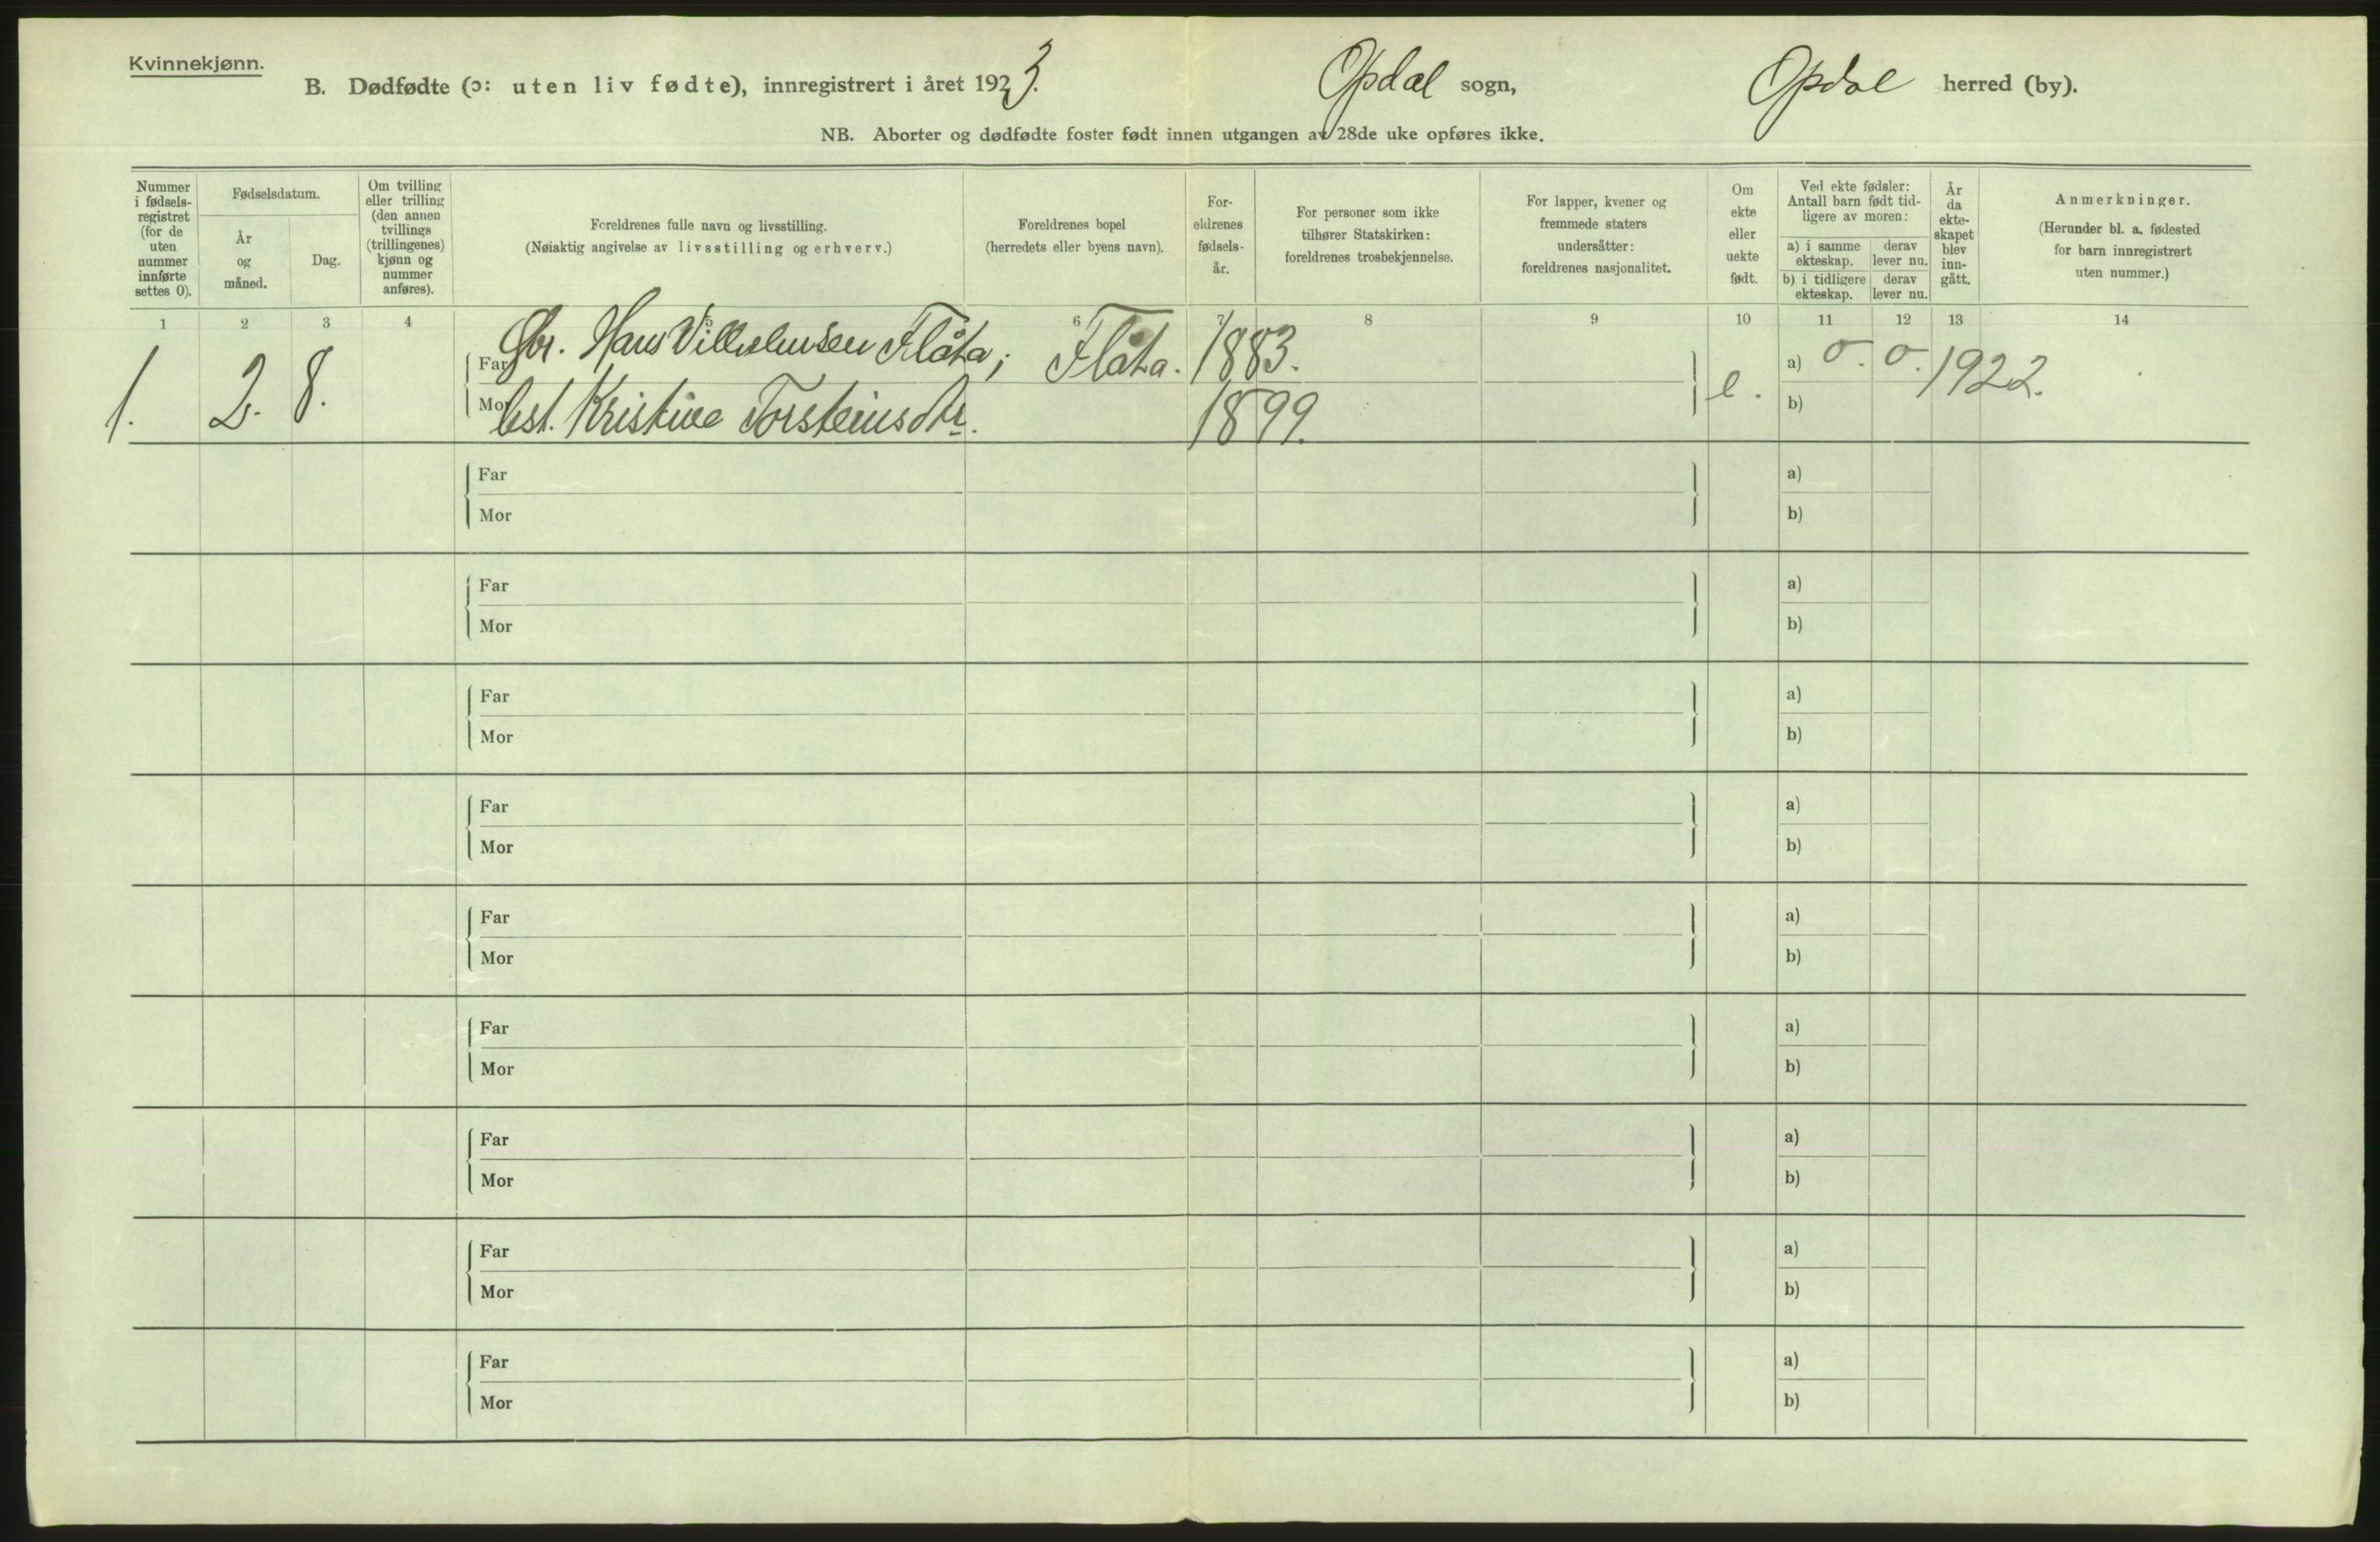 Kvinnekjønn.
B. Dødfødte (ɔ: uten liv fødte), innregistrert i året 1923. Opdal sogn, Opdal herred (by).
NB. Aborter og dødfødte foster født innen utgangen av 28de uke opføres ikke.
Nummer i fødsels-registret (for de uten nummer innførte settes 0).
Fødselsdatum.
År og måned.
Dag.
Om tvilling eller trilling (den annen tvillings (trillingenes) kjønn og nummer anføres).
Foreldrenes fulle navn og livsstilling.
(Nøiaktig angivelse av livsstilling og erhverv.)
Foreldrenes bopel
(herredets eller byens navn).
For-eldrenes fødsels-år.
For personer som ikke tilhører Statskirken: foreldrenes trosbekjennelse.
For lapper, kvener og fremmede staters undersåtter: foreldrenes nasjonalitet.
Om ekte eller uekte født.
Ved ekte fødsler: Antall barn født tid-ligere av moren:
a) i samme ekteskap.
derav lever nu.
b) i tidligere ekteskap.
derav lever nu.
År da ekte-skapet blev inn-gått.
Anmerkninger.
(Herunder bl. a. fødested for barn innregistrert uten nummer.)
1 2 3 4 5 6 7 8 9 10 11 12 13 14
1. 2. 8. Far Gbr. Hans Vilhelmsen Flåta; Flåta. 1883. e. a) 0. 0. 1922.
Mor Kristine Torsteinsdtr. 1899. b)
Far a)
Mor b)
Far a)
Mor b)
Far a)
Mor b)
Far a)
Mor b)
Far a)
Mor b)
Far a)
Mor b)
Far a)
Mor b)
Far a)
Mor b)
Far a)
Mor b)